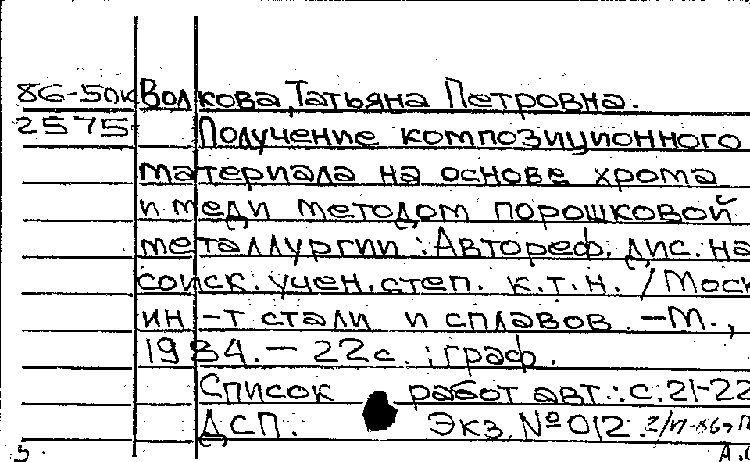 86-50к Волкова, Татьяна Петровна.
2575 Получение композиционного
материала на основе хрома
и меди методом порошковой
металлургии : Автореф. дис. на
соиск. учен. степ. к.т.н. / Моск
ин-т стали и сплавов. - М.,
1984. - 22с. : граф.
Список работ авт.: с. 21-22
ДСП. Экз. № 012.